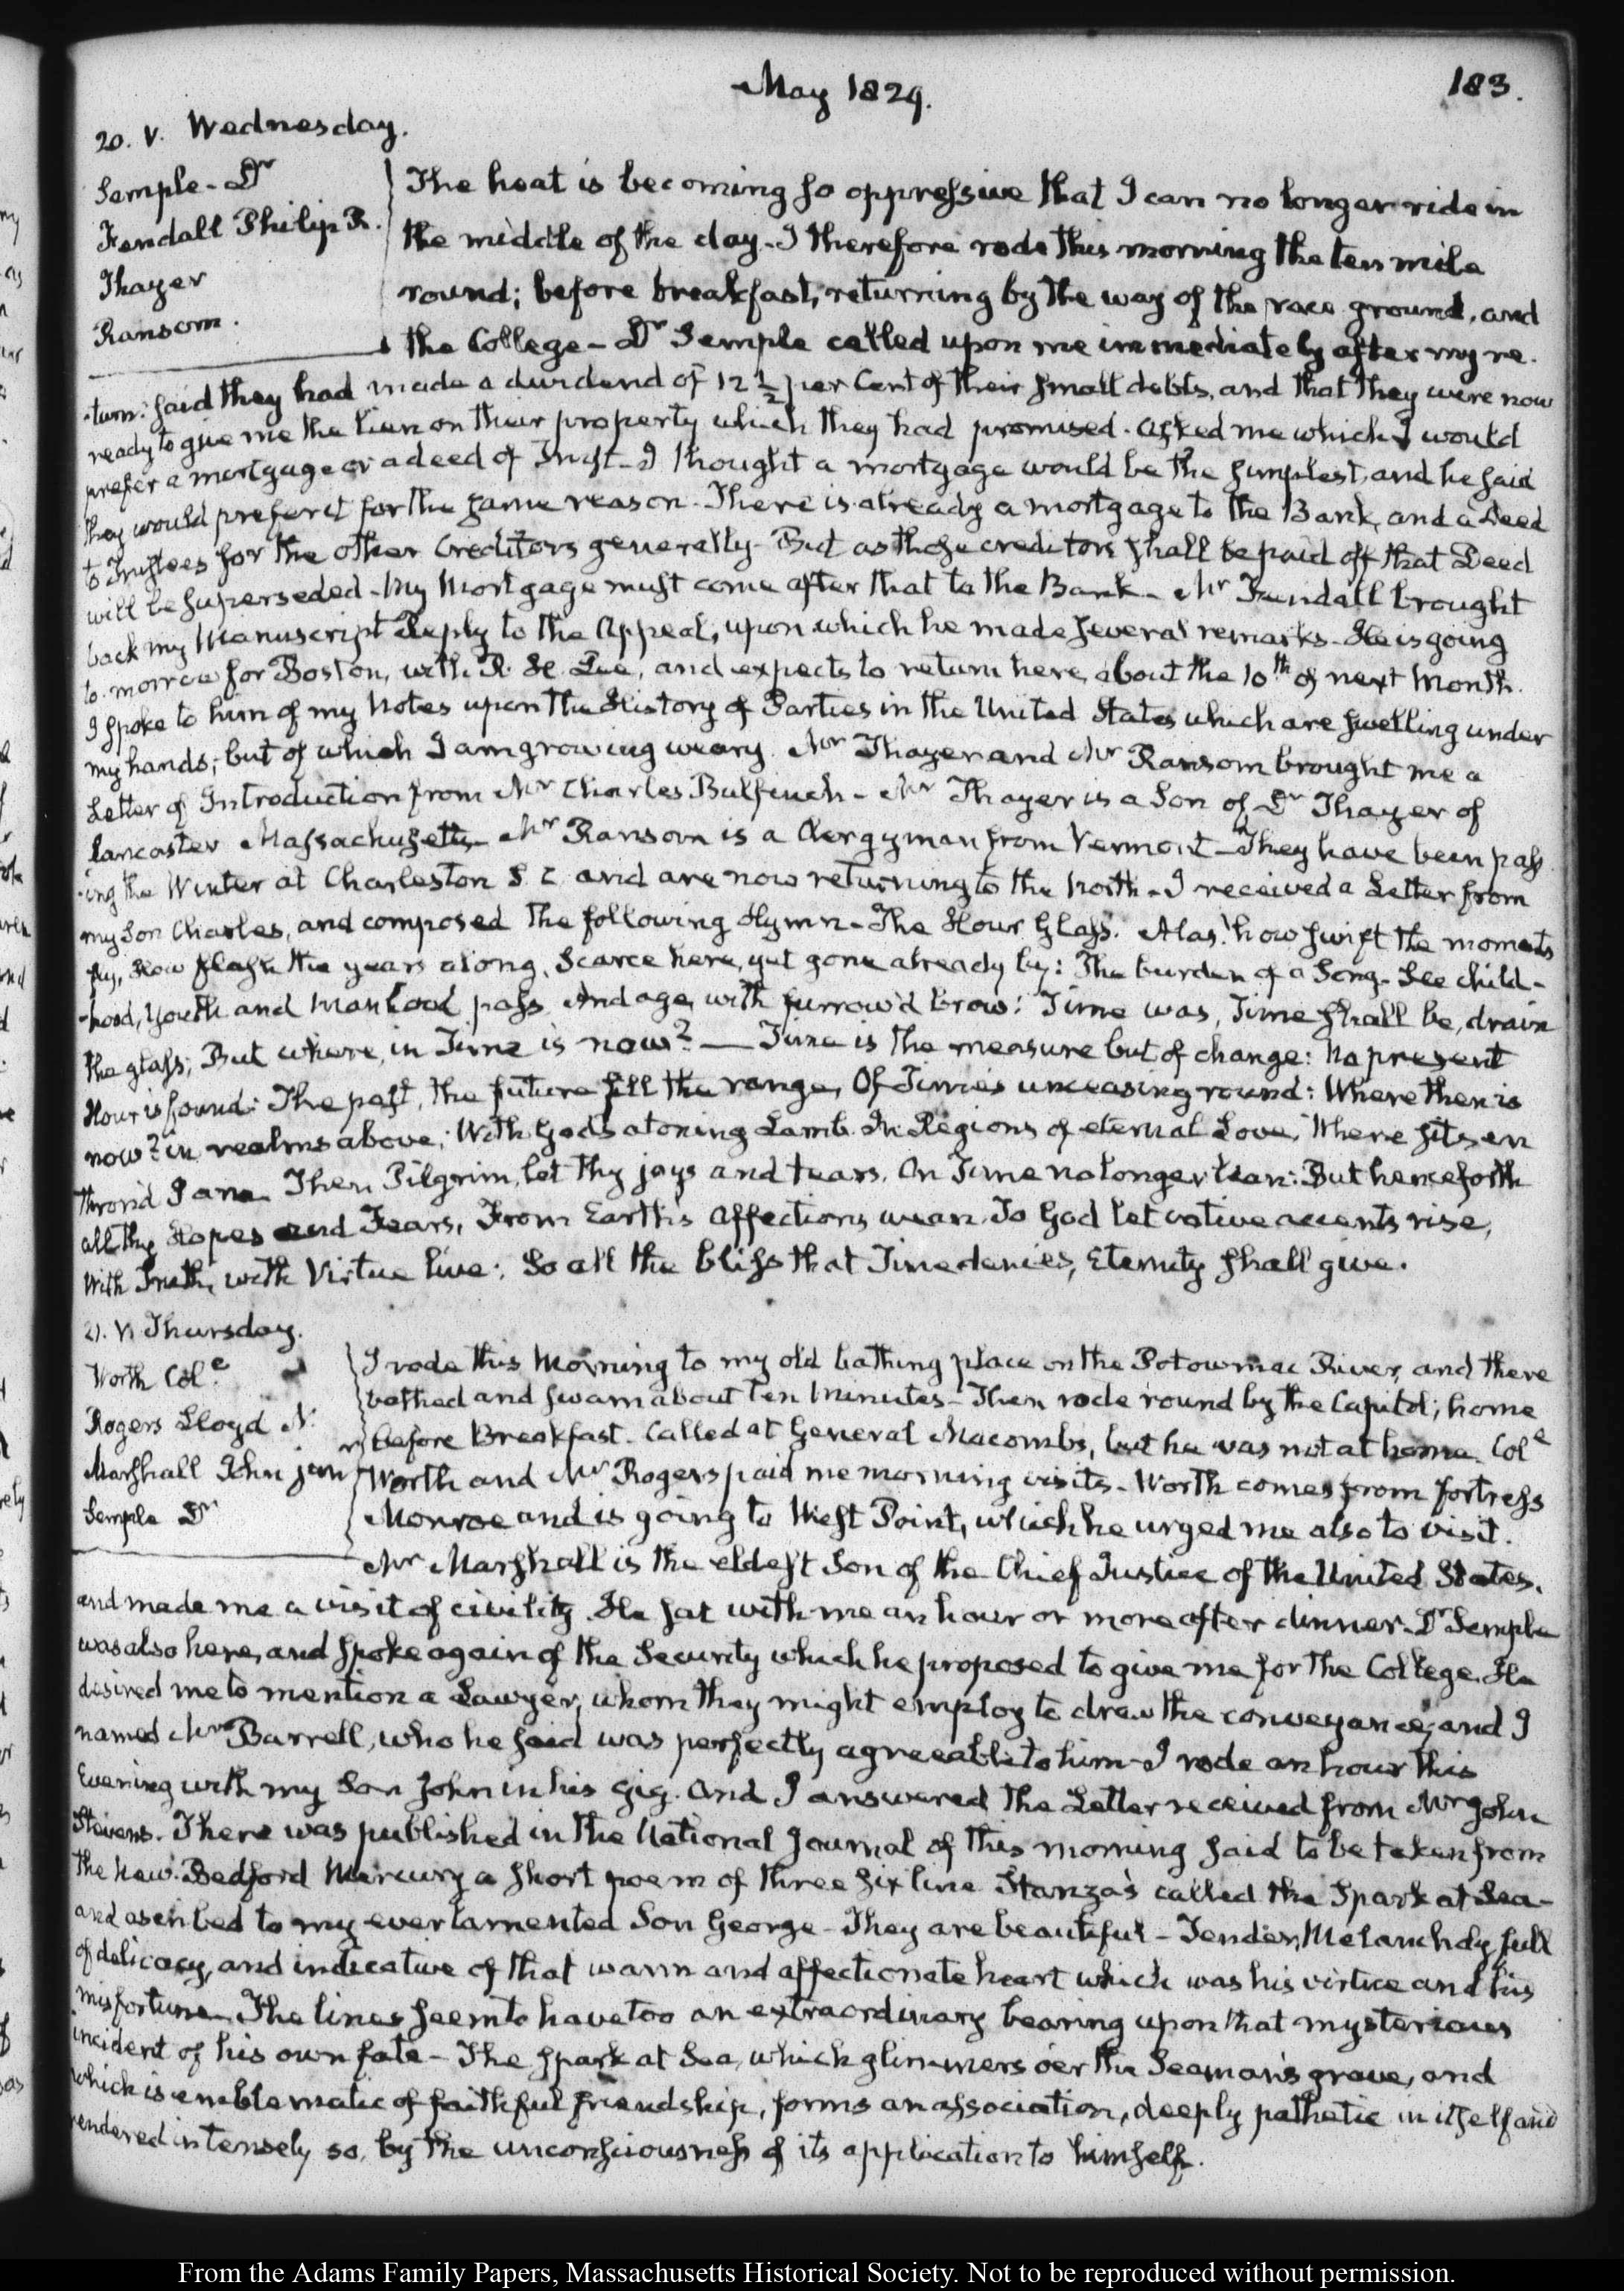 May 1829.
183.
20. V. Wednesday.
Semple - Dr
Fendall Philip R.
Thayer
Ransom.
The heat is becoming so oppressive that I can no longer ride in
the middle of the day - I therefore rode this morning the ten mile
round; before breakfast, returning by the way of the race ground, and
the College - Dr Semple called upon me immediately after my re-
-turn: said they had made a dividend of 12 1/2 per Cent of their small debts, and that they were now
ready to give me the lien on their property which they had promised. asked me which I would
prefer a mortgage or a deed of Trust - I thought a mortgage would be the simplest, and he said
they would prefer it for the same reason - There is already a mortgage to the Bank, and a Deed
to Trustees for the other Creditors generally - But as those creditors shall be paid off that Deed
will be superseded - My Mortgage must come after that to the Bank - Mr Fendall brought
back my Manuscript Reply to the Appeal, upon which he made several remarks - He is going
to-morrow for Boston, with R. H. Lee, and expects to return here, about the 10th of next Month.
I spoke to him of my Notes upon the History of Parties in the United States which are swelling under
my hands; but of which I am growing weary. Mr Thayer and Mr Ransom brought me a
Letter of Introduction from Mr Charles Bulfinch - Mr Thayer is a Son of Dr Thayer of
Lancaster Massachusetts - Mr Ransom is a Clergyman from Vermont - They have been pass
-ing the Winter at Charleston S C. and are now returning to the North - I received a Letter from
my Son Charles, and composed the following Hymn - The Hour Glass. Alas! how swift the moments
fly, How flash the years along, Scarce here, yet gone already by: The burden of a Song - See child-
-hood, Youth and Manhood pass And age, with furrow'd brow: Time was, Time shall be, drain
the glass; But where, in Time is now? — Time is the measure but of change: No present
Hour is found: The past, the future fill the range, Of Time's unceasing round: Where then is
now? in realms above; With God's atoning Lamb. In Regions of eternal Love, Where sits en
thron'd I am. Then, Pilgrim, let thy joys and tears, On Time no longer lean: But henceforth
all thy Hopes and Fears, From Earth's affections wean. To God let votive accents rise,
With Truth, with Virtue live: So all the bliss that Time denies, Eternity shall give.
21. V. Thursday.
Worth Cole
Rogers Lloyd N.
Marshall John junr
Semple Dr
I rode this Morning to my old bathing place on the Potowmac River, and there
bathed and swam about ten Minutes - Then rode round by the Capitol; home
before Breakfast. Called at General Macombs, but he was not at home. Cole
Worth and Mr Rogers paid me morning visits - Worth comes from fortress
Monroe and is going to West Point, which he urged me also to visit.
Mr Marshall is the eldest Son of the Chief Justice of the United States.
and made me a visit of civility. He sat with me an hour or more after dinner - Dr Semple
was also here, and spoke again of the Security which he proposed to give me for the College. He
desired me to mention a Lawyer, whom they might employ to draw the conveyance, and I
named Mr Barrell, who he said was perfectly agreeable to him - I rode an hour this
Evening with my Son John in his gig. And I answered the Letter received from Mr John
Stevens. There was published in the National Journal of this morning said to be taken from
the New-Bedford Mercury a short poem of three six line Stanza's called the Spark at Sea -
and ascribed to my ever lamented Son George - They are beautiful - Tender, Melancholy, full
of delicacy, and indicative of that warm and affectionate heart which was his virtue and his
misfortune - The lines seem to have too an extraordinary bearing upon that mysterious
incident of his own fate - The spark at Sea, which glimmers o'er the Seaman's grave, and
which is emblematic of faithful friendship, forms an association, deeply pathetic in itself and
rendered intensely so, by the unconsciousness of its application to himself.
From the Adams Family Papers, Massachusetts Historical Society. Not to be reproduced without permission.